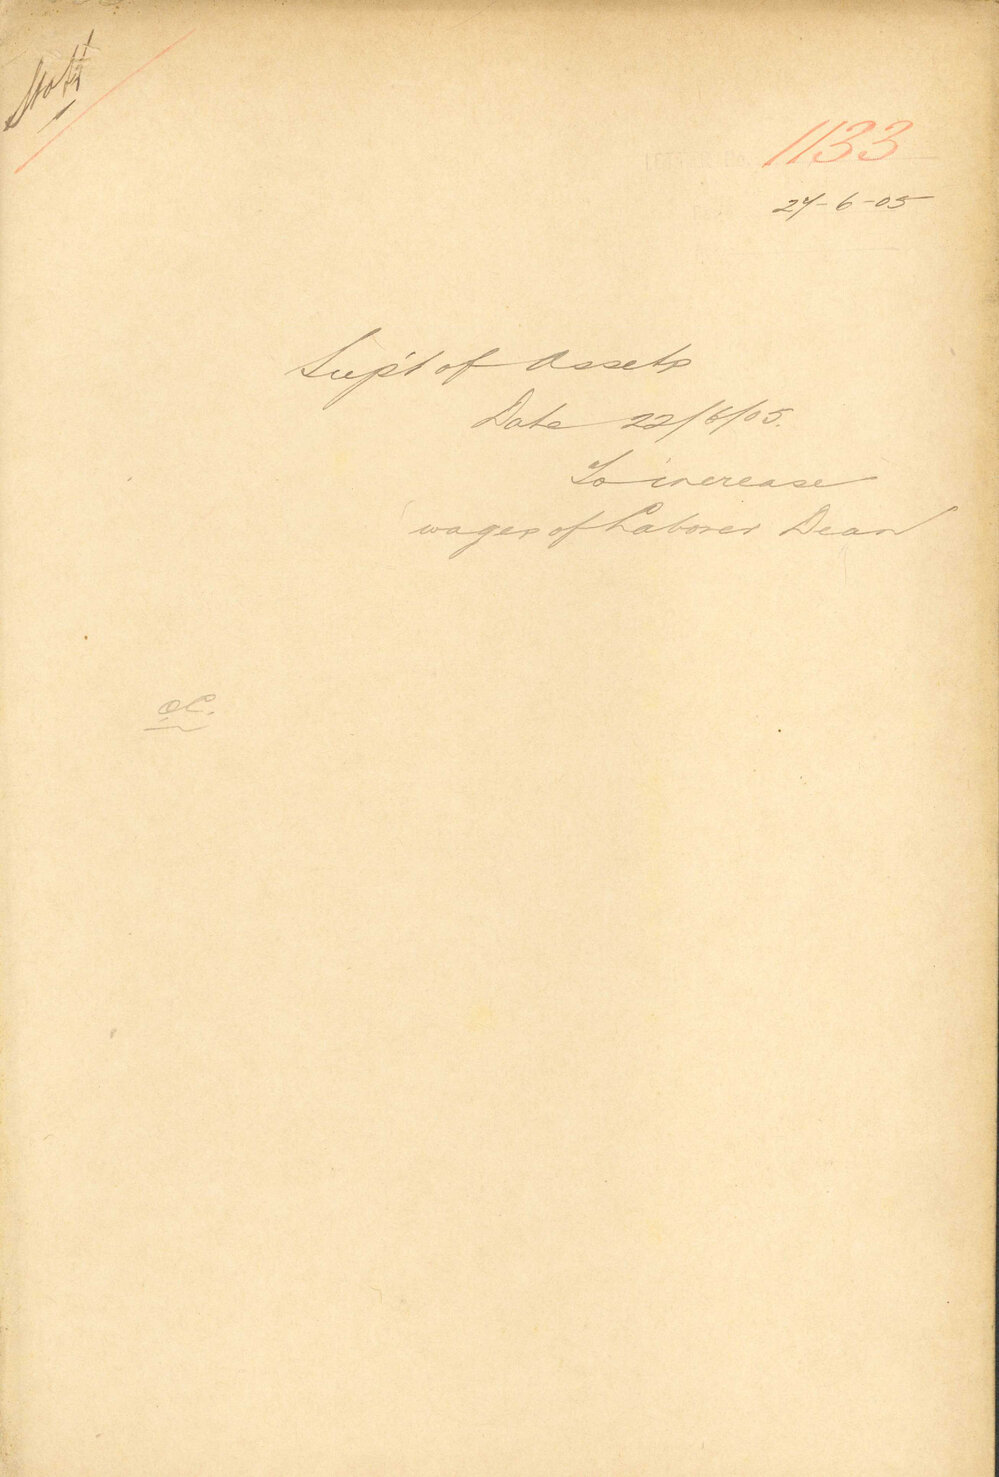 Stott
1133
27-6-05
Sup't of Assets
Date 22/6/05.
To increase
wages of Laborer Dean